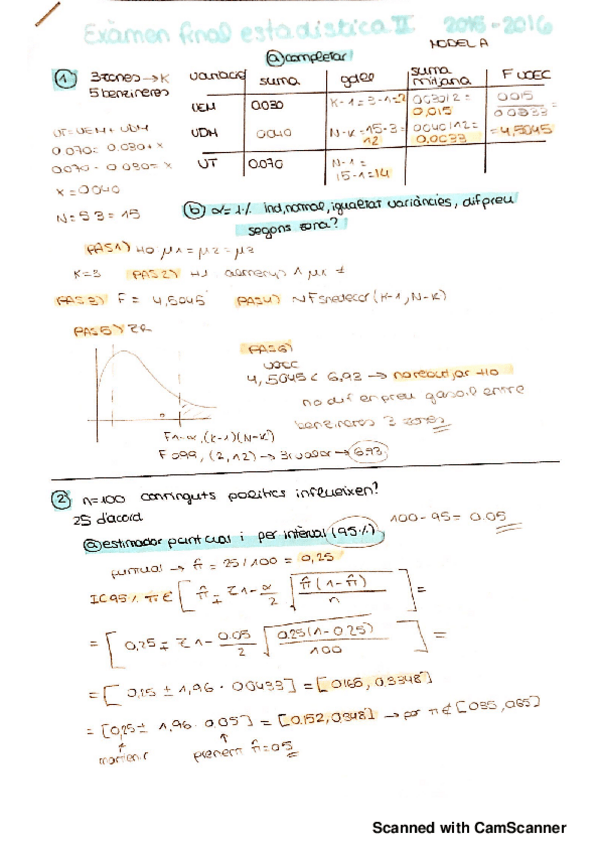 Exàmen final estadística II 2015-2016
MODEL A
a) completar
1 3 zones → K
5 benzineres
variació suma gdell suma mitjana F VOEC
VEM 0.030 K-1=3-1=2 0.030/2= 0,015 0.015/0.0033 = 4,5045
VDM 0.040 N-K=15-3= 12 0.040/12= 0.0033
VT 0.070 N-1= 15-1=14
VT=VEM+VDM
0.070= 0.030+x
0.070-0.030=x
x=0.040
N=5·3=15
b) α=1% Ind, normal, igualtat variàncies, dif preu
segons zona?
PAS 1) H0 μ1=μ2=μ3
K=3 PAS 2) H1 almenys 1 μi ≠
PAS 3) F= 4,5045 PAS 4) ~F Snedecor (K-1, N-K)
PAS 5) ZR
PAS 6)
VOEC
4,5045 < 6,93 → no rebutjar H0
no dif en preu gasoil entre
benzineres 3 zones
F1-α,(K-1)(N-K)
F 0.99, (2,12) → 6.93
2 n=100 continguts positius influeixen?
25 d'acord
100-95= 0.05
a) estimador puntual i per interval (95%)
puntual → π̂ = 25/100 = 0,25
IC95% π∈ [ π̂ ∓ z1-α/2 √(π̂(1-π̂)/n) ] =
= [ 0,25 ∓ z1-0.05/2 √(0.25(1-0.25)/100) ] =
= [ 0,15 ± 1,96 · 0.0433 ] = [0.165, 0.3348]
= [0,25 ± 1,96 · 0.05] = [0.152, 0.348]
π̂=0.5
Scanned with CamScanner